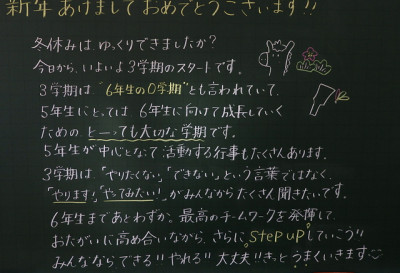 新年 あけまして おめでとうございます!!
冬休みは ゆっくりできましたか?
今日から、いよいよ3学期のスタートです。
3学期は "6年生の0学期"とも言われていて、
5年生にとっては 6年生に向けて成長していく
ための とーっても大切な学期です。
5年生が中心となって活動する行事もたくさんあります。
3学期は「やりたくない」「できない」という言葉ではなく、
「やります」「やってみたい!」がみんなからたくさん聞きたいです。
6年生まであとわずか。最高のチームワークを発揮して、
おたがいに高め合いながら、さらにStep upしていこう!!
みんなならできる!!やれる!!大丈夫!!きっとうまくいきます